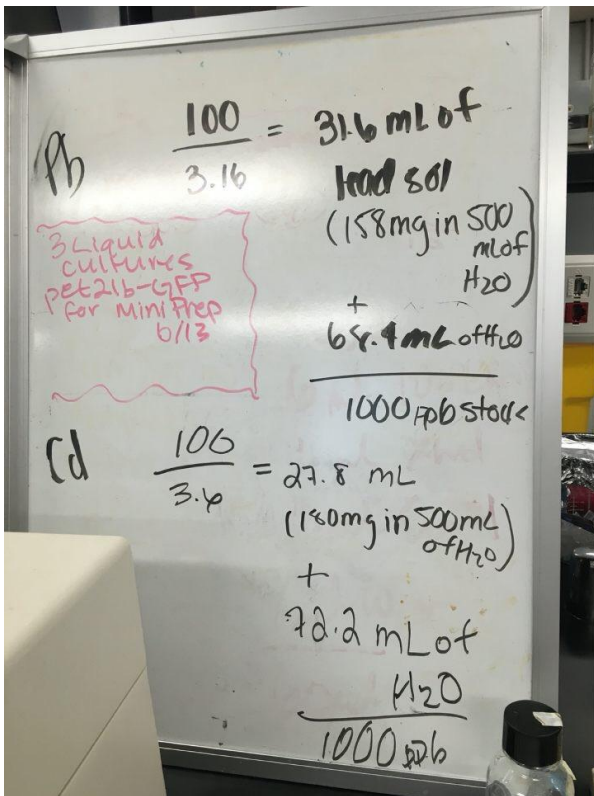 Pb
100
3.16
= 31.6 mL of
lead sol
(158mg in 500
mL of
H2O)
+
68.4 mL of H2O
1000 ppb stock
3 Liquid
cultures
pet21b-GFP
for MiniPrep
6/13
Cd
100
3.6
= 27.8 mL
(180mg in 500mL
of H2O)
+
72.2 mL of
H2O
1000 ppb